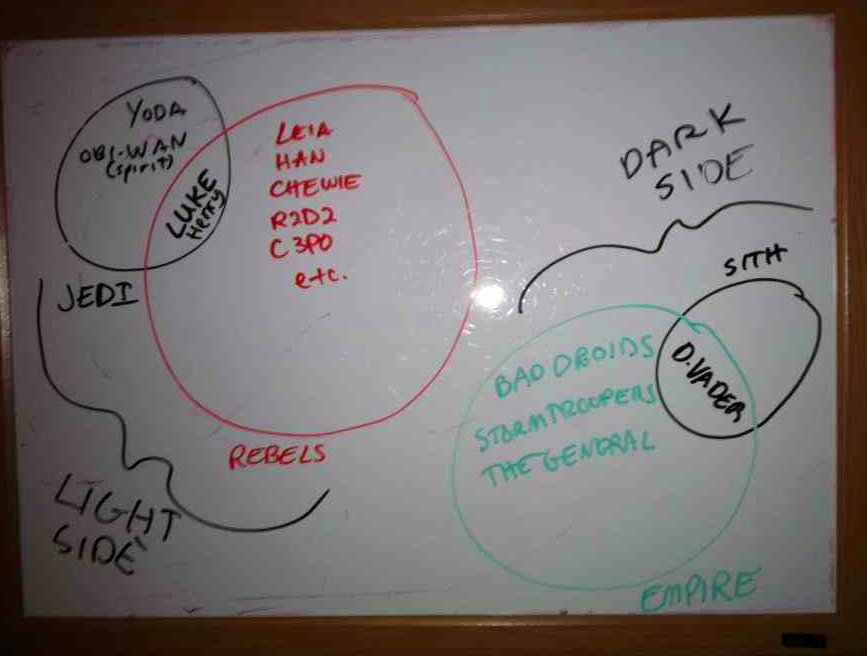 YODA
OBI-WAN
(spirit)
LUKE
Henry
JEDI
LEIA
HAN
CHEWIE
R2D2
C3PO
etc.
REBELS
LIGHT
SIDE
DARK
SIDE
SITH
D.VADER
BAD DROIDS
STORMTROOPERS
THE GENERAL
EMPIRE